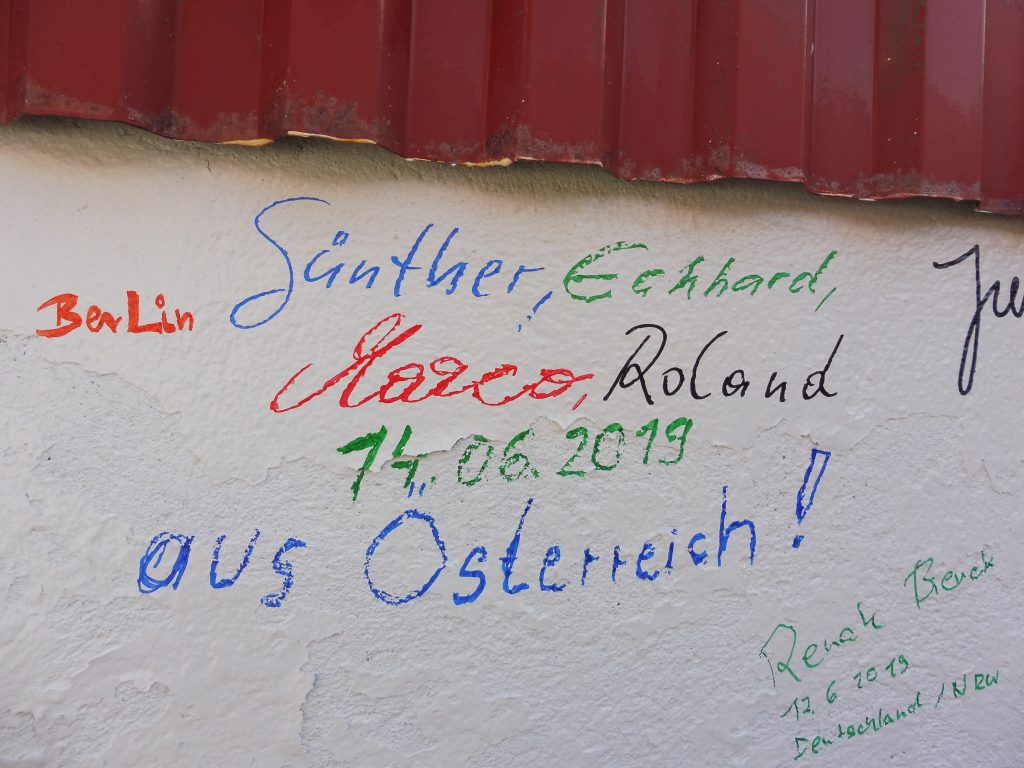 Günther, Eckhard,
BerLin
Marco, Roland
14.06.2019
aus Österreich!
Renate
12.6 2019
Deutschland / NRW